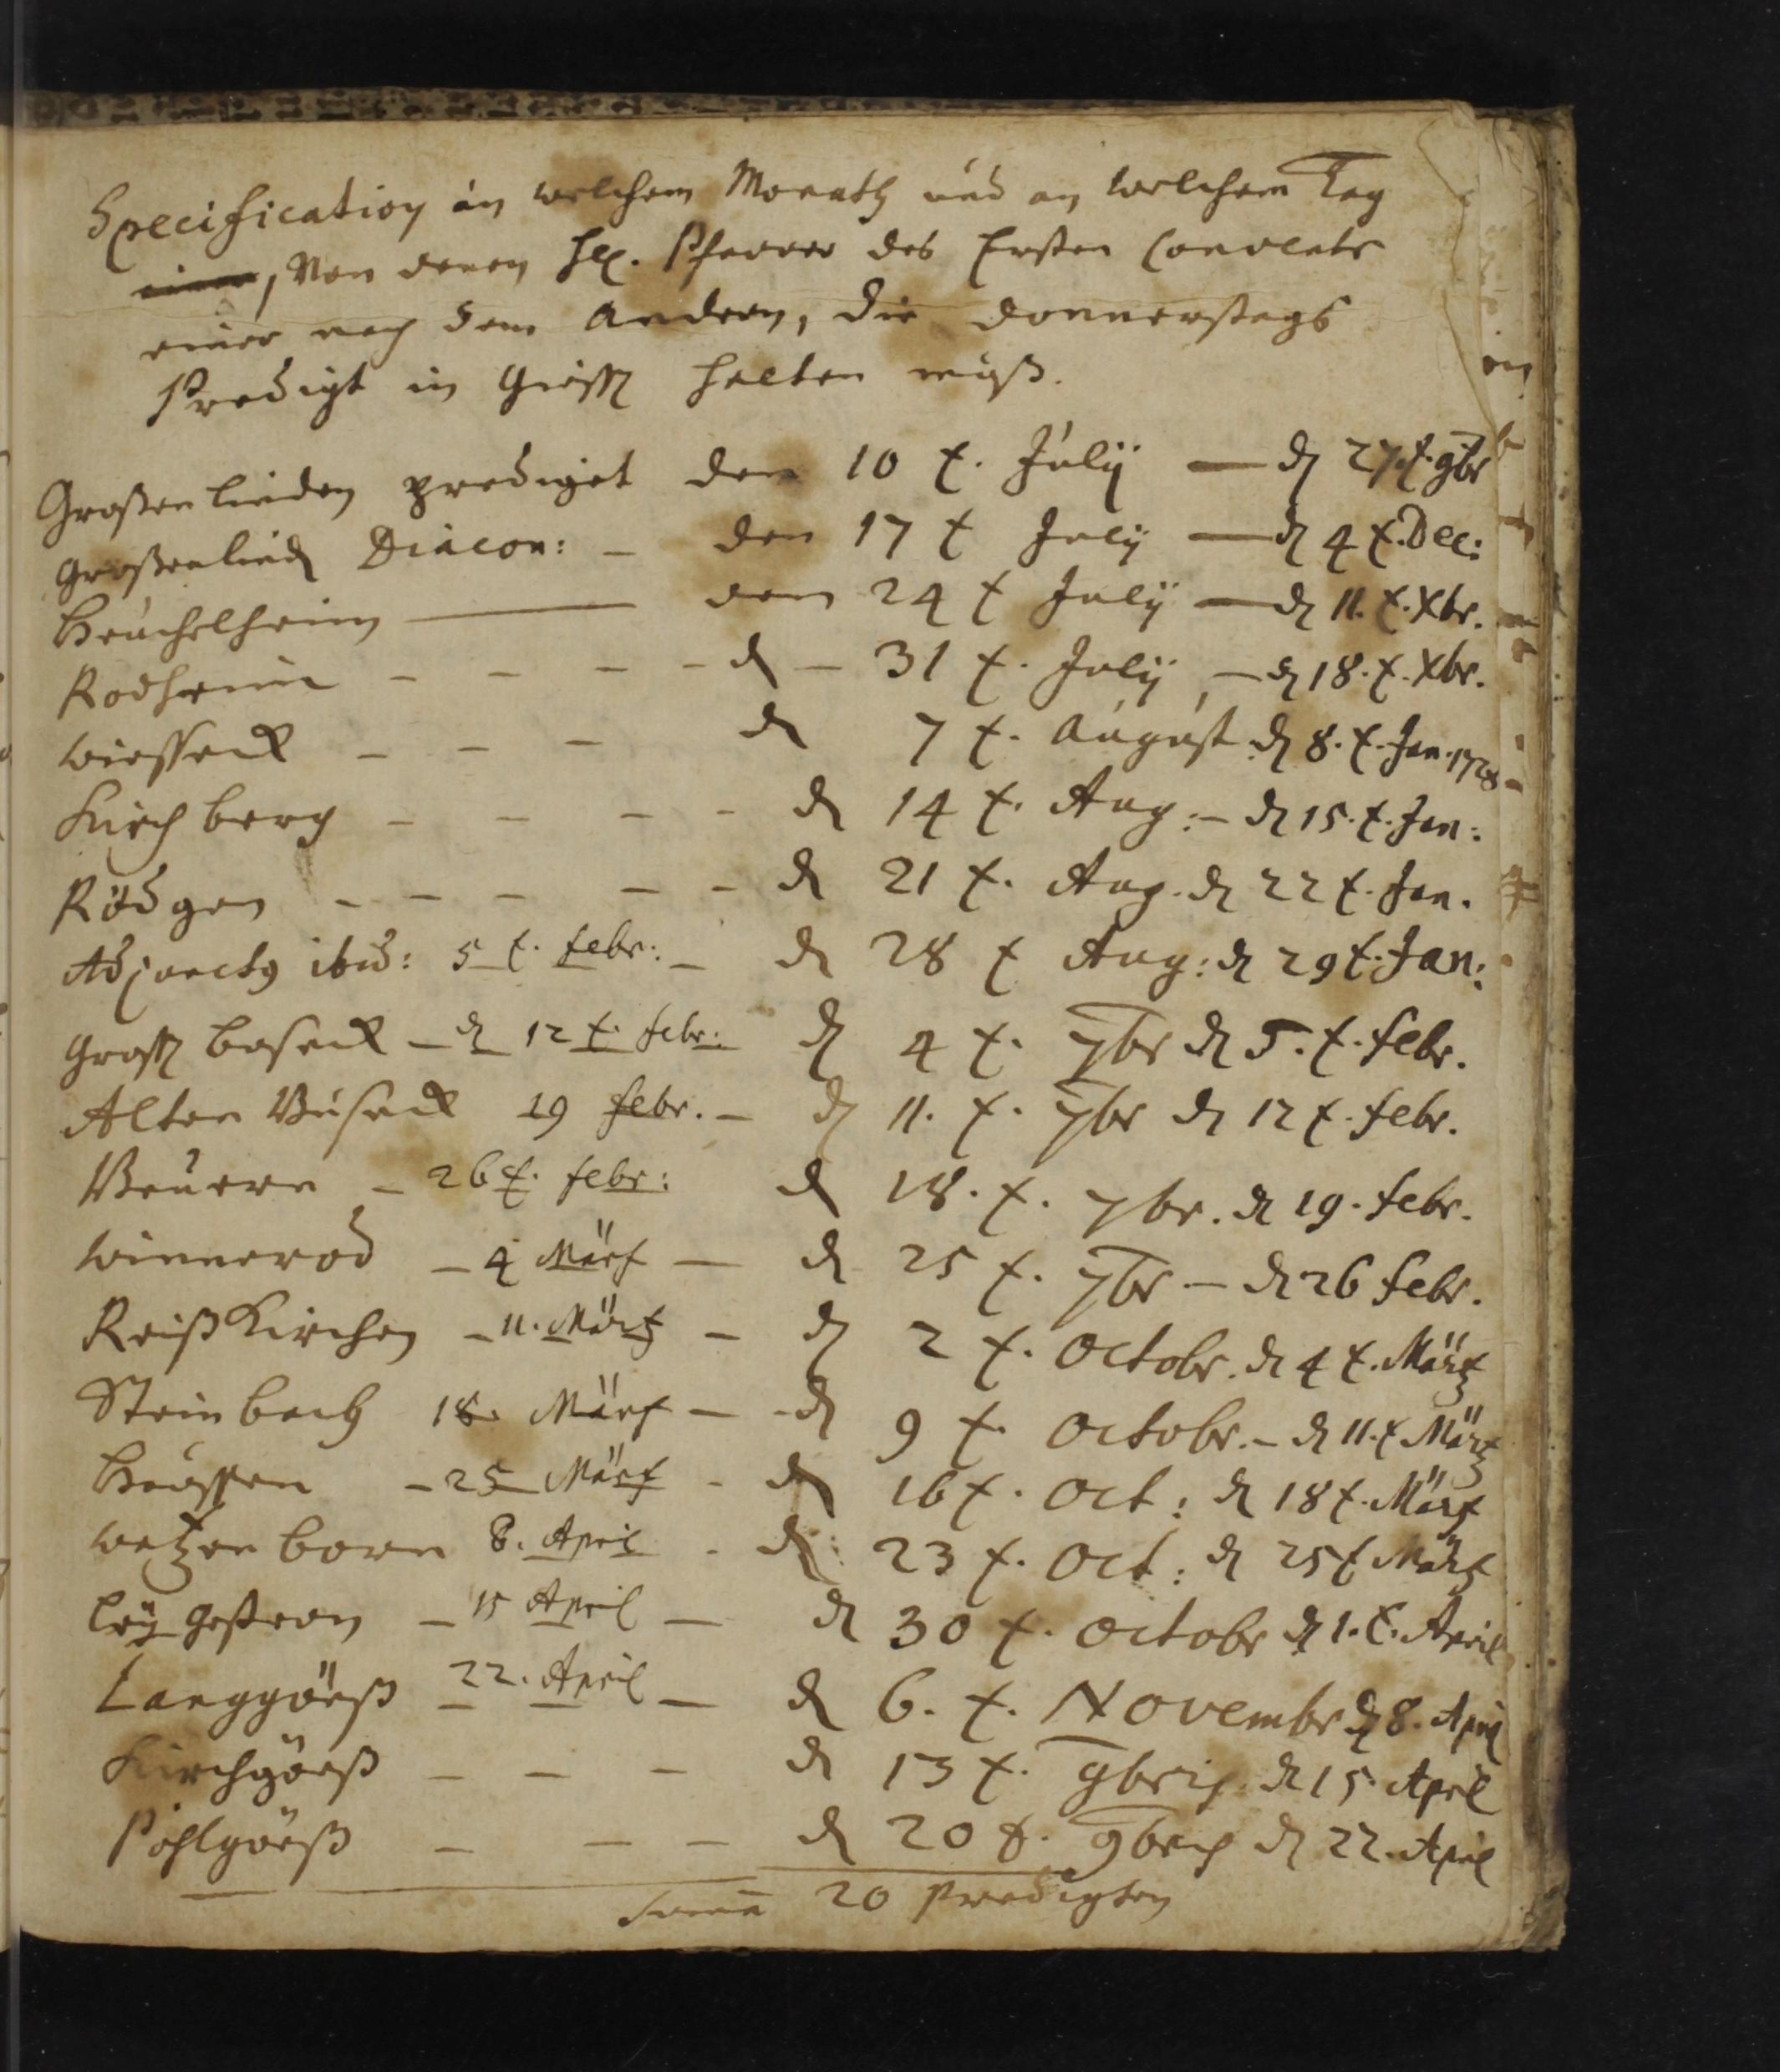 Specification in welchem Monath und an welchem Tag
einer, Von denen HE. Pfarrer des Ersten Convents
einer nach dem Andern, die Donnerstags
Predigt in Giessen halten muß.
Großenlinden prediget den 10 t. Julij — d 27 t. 9br
Großenlinden Diacon: – den 17 t Julij — d 4 t. Dec:
Heuchelheim — den 24 t Julij — d 11. t. Xbr.
Rodheim – – – – d – 31 t. Julij – d 18. t. Xbr.
Wiesseck – – – d 7 t. August d 8. t. Jan. 1728
Kirchberg – – – – d 14 t. Aug: – d 15. t. Jan:
Rödgen – – – – – d 21 t. Aug. d 22 t. Jan.
Adjunctus ibid: 5 t. febr. – d 28 t Aug: d 29 t. Jan:
Großen Buseck – d 12 t. febr: d 4 t. 7br d 5. t. febr.
Alten Buseck 19 febr. – d 11. t. 7br d 12 t. febr.
Beuern – 26 t. febr: d 18. t. 7br. d 19. febr.
Winnerod – 4 Märtz – d 25 t. 7br – d 26 febr.
Reißkirchen – 11. Märtz – d 2 t. Octobr. d 4 t. Märtz
Steinbach 18. Märtz – d 9 t. Octobr. – d 11. t Märtz
Haussen – 25 Märtz – d 16 t. Oct: d 18 t. Märtz
Watzenborn 8. April – d 23 t. Oct: d 25 t Märtz
Leÿgestern – 15 April – d 30 t. Octobr d 1. t. April
Langgönß 22. April – d 6. t. Novembr d 8. April
Kirchgönß – – – d 13 t. 9bris d 15. April
Pohlgönß – – – d 20 t. 9bris d 22. April
Summa 20 Predigten